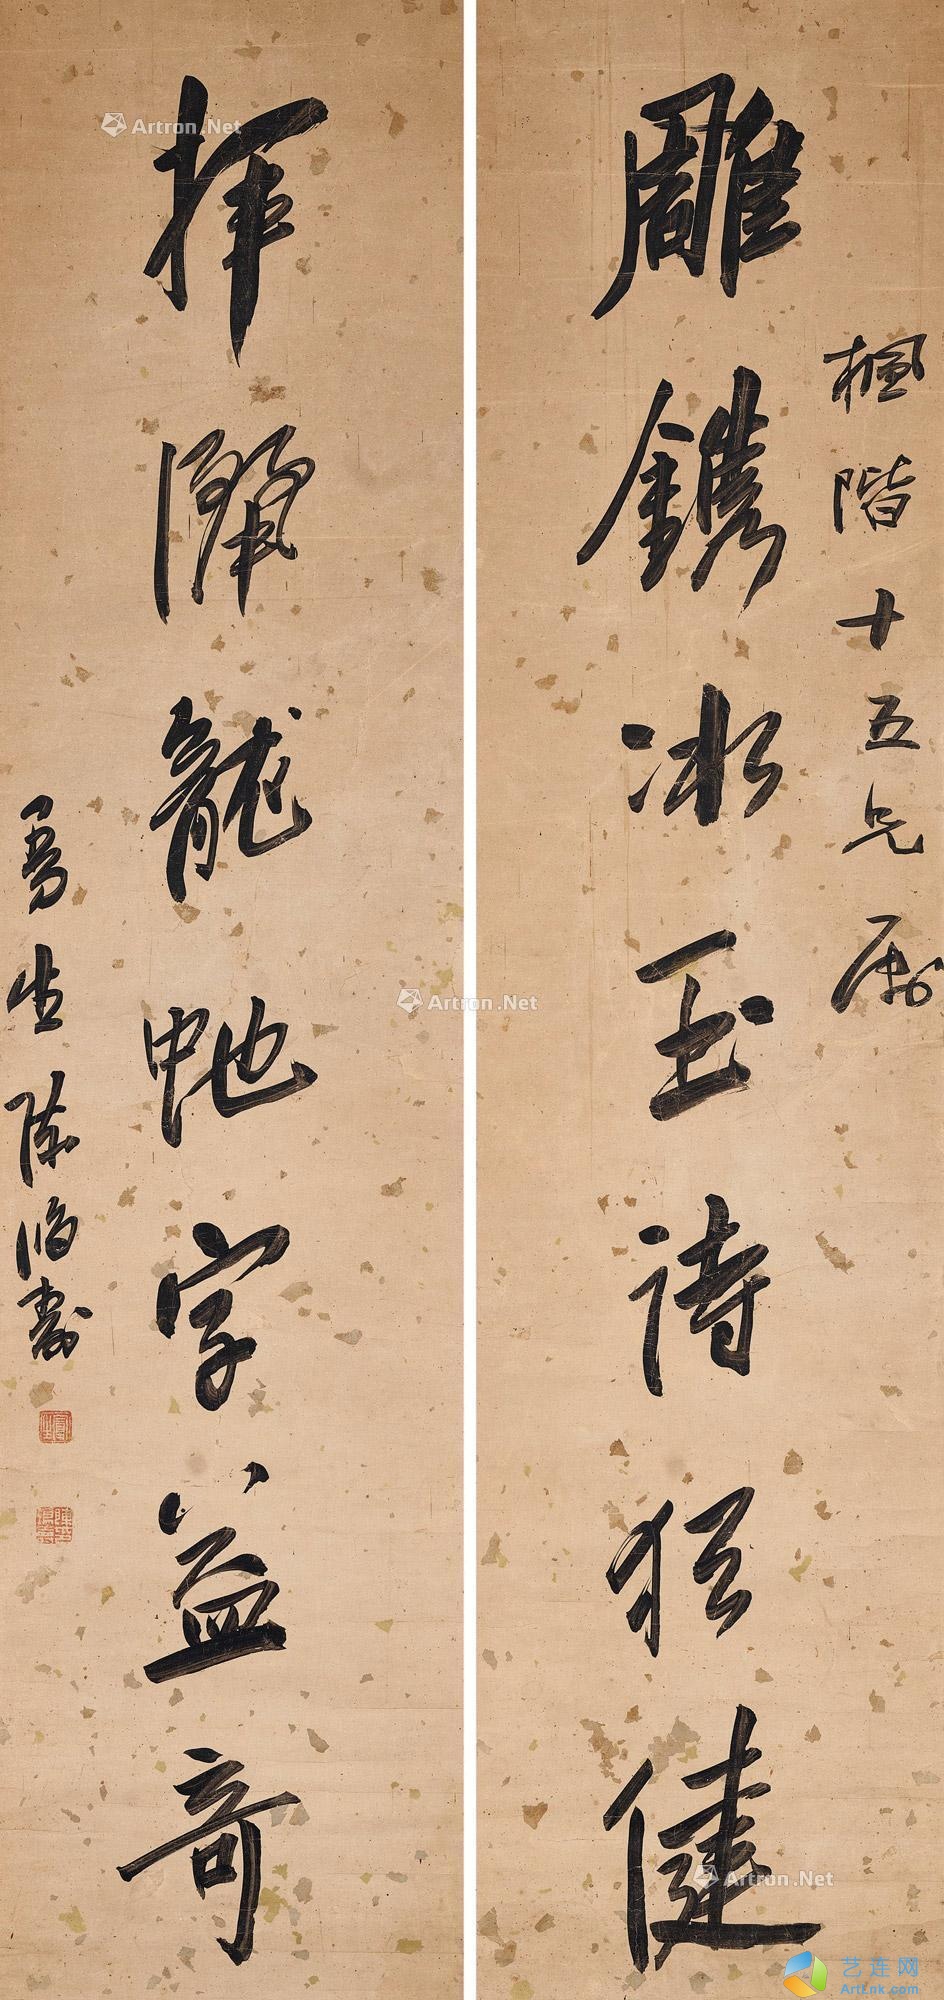 楓階十五兄屬
雕鐫冰玉詩猶健
揮灑龍虵字益奇
生陳壽
Artron.Net
Artron.Net
Artron.Net
艺连网
ArtLnk.com